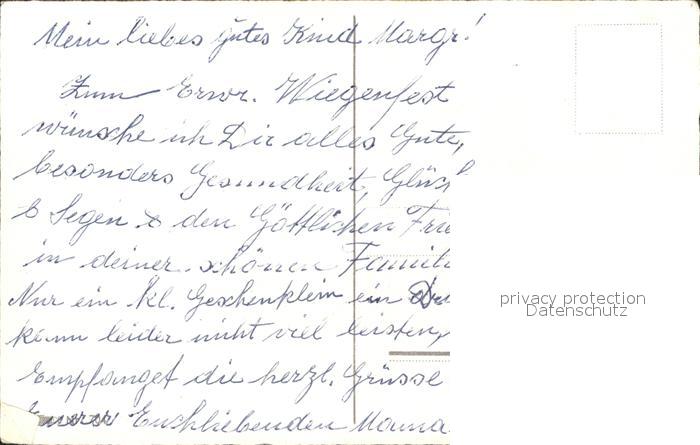 Mein liebes gutes Kind Margr!
Zum Erwr. Wiegenfest
wünsche ich Dir alles Gute,
besonders Gesundheit, Glück
& Segen & den Göttlichen Frie
in deiner schönen Famili
Nur ein kl. Geschenklein ein
kann leider nicht viel leisten,
Empfanget die herzl. Grüsse
Eurer Euchliebenden Mama
privacy protection
Datenschutz